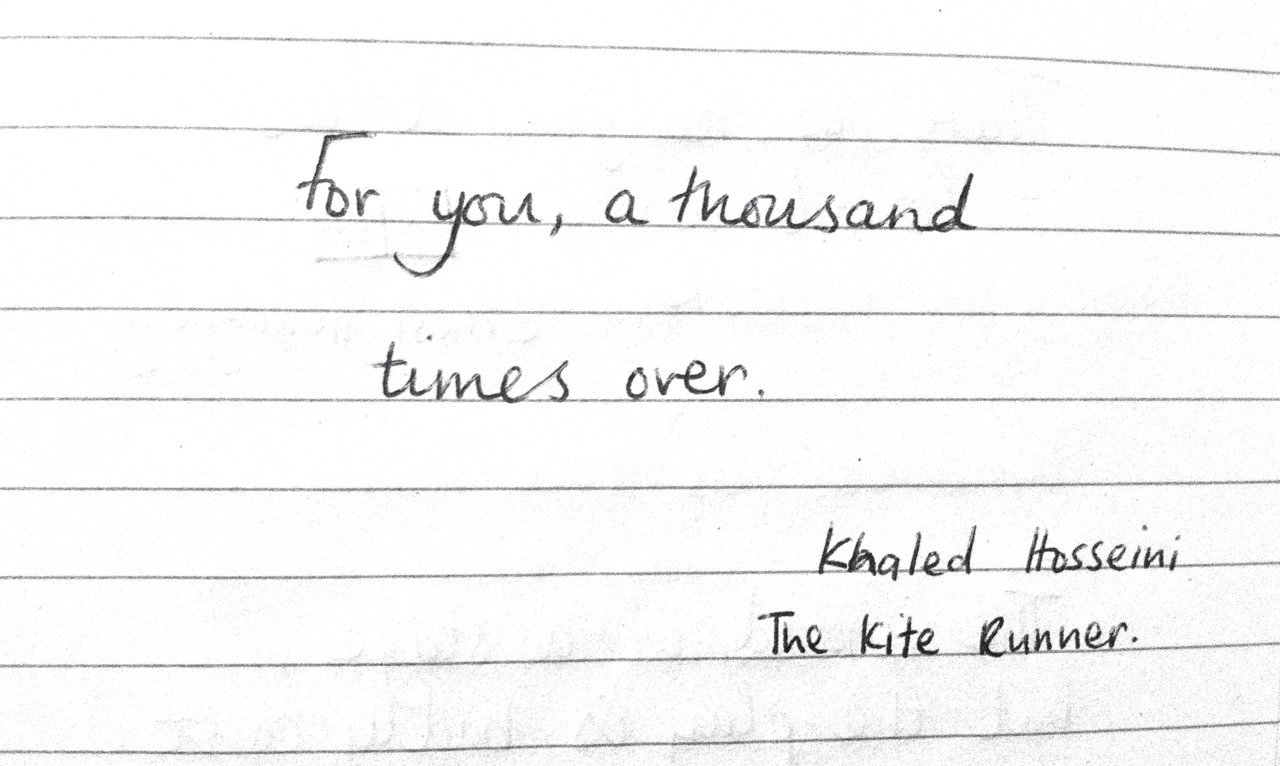 For you, a thousand
times over.
Khaled Hosseini
The Kite Runner.